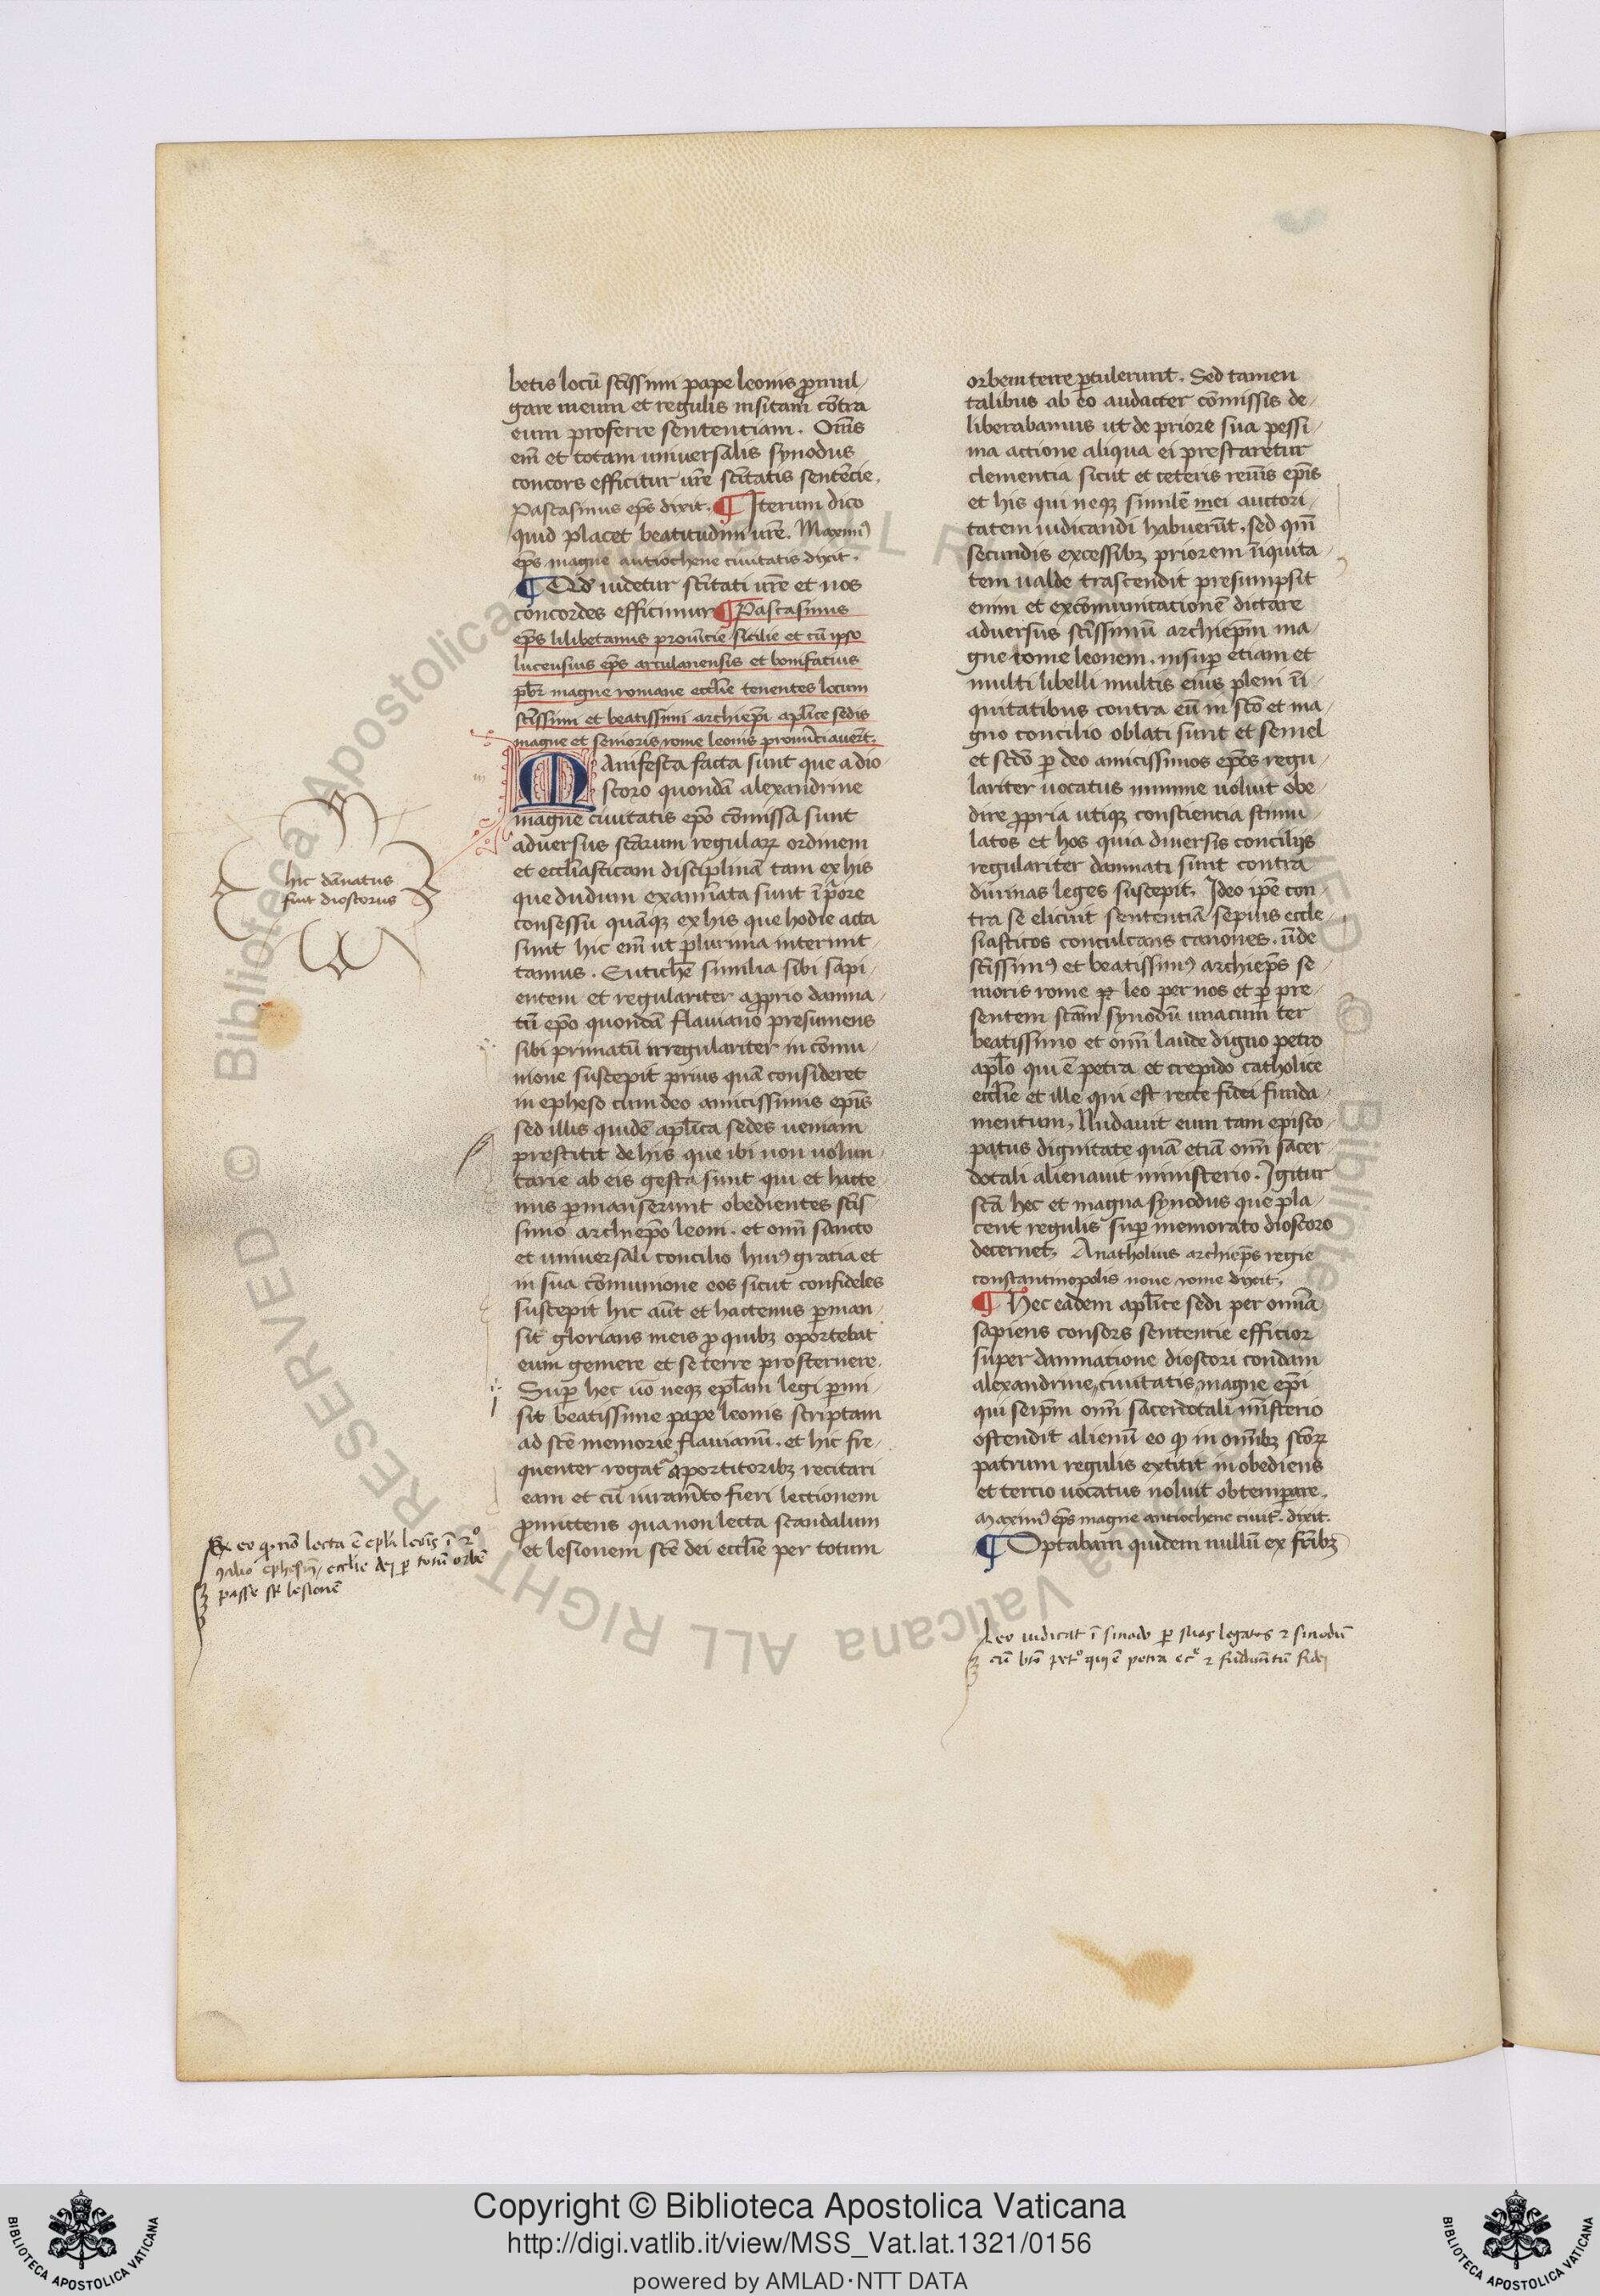 betis locū sc̄issimi pape leonis p̄mul
gare meum et regulis insitam cōtra
eum proferre sententiam . Om̄s
em̄ et totam universalis synodus
concors efficitur ur̄e sc̄itatis sentēcie .
Pascasinus ep̄s dixit . ¶ Iterum dico
quid placet beatitudini ur̄e . Maximꝰ
ep̄s magne antiochene ciuitatis dixit .
¶ Qd̄ uidetur sc̄itati ur̄e et nos
concordes efficimur ¶ Pascasinus
ep̄s lilibetanus prouīcie sicilie et cū ipso
lucensius ep̄s arculanensis et bonifatius
pb̄r magne romane eccl̄ie tenentes locum
sc̄issimi et beatissimi archiep̄i apl̄ice sedis
magne et senioris rome leonis pronūciauer̄t .
Manifesta facta sunt que a dio
scoro quondā alexandrine
magne ciuitatis ep̄o cōmissa sunt
aduersus sc̄arum regularꝝ ordinem
et eccl̄iasticam disciplinā tam ex his
que dudum examīata sunt ī p̄ore
consessu quāqꝫ ex his que hodie acta
sunt hic em̄ ut p̄lurima intermit
tamus . Eutichē similia sibi sapi
entem et regulariter a ꝓprio damna
tū ep̄o quondā flauiano presumens
sibi primatū irregulariter in cōmu
nione suscepit prius quā consideret
in epheso cum deo amicissimis ep̄is
sed illis quidē apl̄ica sedes ueniam
prestitit de his que ibi non uolun
tarie ab eis gesta sunt qui et hacte
nus ꝑmanserunt obedientes sc̄is
simo archiep̄o leoni . et om̄i sancto
et uniuersali concilio huiꝰ gratia et
in sua cōmunione eos sicut confideles
suscepit hic aūt et hactenus ꝑman
sit glorians meis ꝓ quibꝫ oportebat
eum gemere et se terre prosternere .
Suꝑ hec uō neqꝫ epl̄am legi ꝑmi
sit beatissime pape leonis scriptam
ad sc̄e memorie flauianū . et hic fre
quenter rogatꝰ a portitoribꝫ recitari
eam et cū iuram̄to fieri lectionem
ꝓmittens qua non lecta scandalum
et lesionem sc̄e dei eccl̄ie per totum
orbem terre ꝑtulerunt . Sed tamen
talibus ab eo audacter cōmissis de
liberabamus ut de priore sua pessi
ma actione aliqua ei prestaretur
clementia sicut et ceteris reuīs ep̄is
et his qui neqꝫ similē mei auctori
tatem iudicandi habuerūt . sed qm̄
secundis excessibꝫ priorem īiquita
tem ualde trascendit presumpsit
enim et excōmunicationē dictare
aduersus sc̄issimū archiep̄m ma
gne rome leonem . insuꝑ etiam et
multi libelli multis eius pleni īi
quitatibus contra eū in sc̄o et ma
gno concilio oblati sunt et semel
et sc̄do ꝑ deo amicissimos ep̄os regu
lariter uocatus minime uoluit obe
dire ꝓpria utiqꝫ conscientia stimu
latos et hos quia diuersis concilijs
regulariter damnati sunt contra
diuinas leges suscepit . Ideo ip̄e con
tra se elicuit sententiā sepius eccle
siasticos conculcans canones . ūde
sc̄issimꝰ et beatissimꝰ archiep̄s se
nioris rome leo per nos et ꝑ pre
sentem sc̄am synodū una cum ter
beatissimo et om̄i laude digno petro
apl̄o qui ē petra et crepido catholice
eccl̄ie et ille qui est recte fidei funda
mentum , Nudauit eum tam episco
patus dignitate quā etiā om̄i sacer
dotali alienauit ministerio . Igitur
sc̄a hec et magna synodus que pla
cent regulis suꝑ memorato dioscoro
decernet . Anatholius archiep̄s regie
constantinopolis noue rome dixit .
¶ Hec eadem apl̄ice sedi per omīa
sapiens consors sententie efficior
super damnatione dioscori condam
alexandrine ciuitatis magne ep̄i
qui seip̄m om̄i sacerdotali mīsterio
ostendit alienū eo ꝙ in om̄ibꝫ sc̄orꝝ
patrum regulis extitit inobediens
et tercio uocatus noluit obtemꝑare .
Maximꝰ ep̄s magne antiochene ciuit̄ . dixit .
¶ Optabam quidem nullū ex fr̄ibꝫ
hic dānatus
fuit dioscorus
Ex eo ꝙ nō lecta ē epl̄a leōis ī 2º
ꝯilio ephesin̄ , eccl̄ie dei ꝑ totū orbē
passe sūt lesionē
Leo iudicat ī sinodo ꝑ suos legatos ⁊ sinodū
cū bt̄o petº qui ē petra ec̄ ⁊ fūdam̄tū fidei
Copyright © Biblioteca Apostolica Vaticana
http://digi.vatlib.it/view/MSS_Vat.lat.1321/0156
powered by AMLAD·NTT DATA
BIBLIOTECA APOSTOLICA VATICANA
BIBLIOTECA APOSTOLICA VATICANA